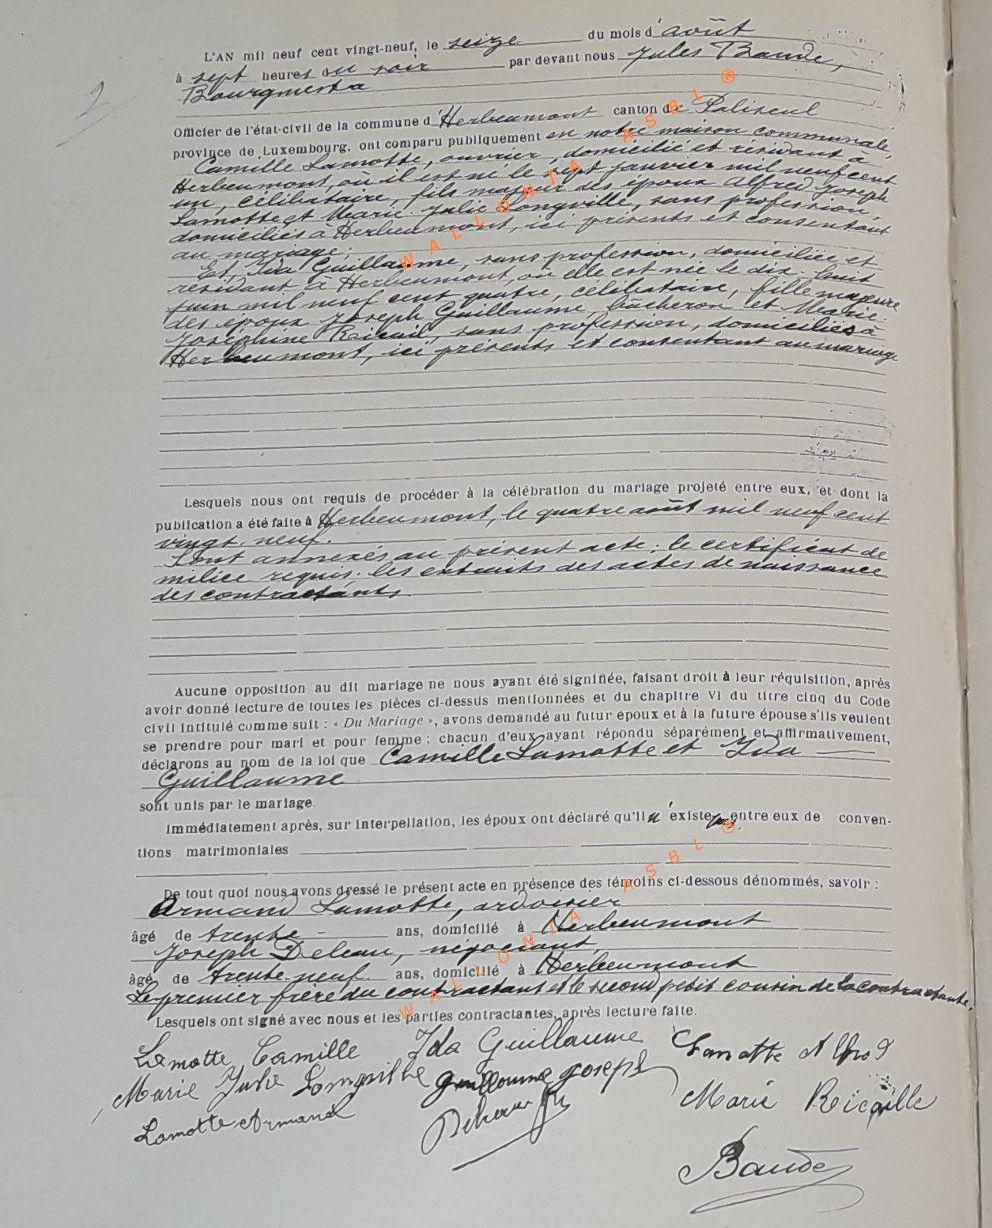 2
L'AN mil neuf cent vingt-neuf, le seize du mois d'août
à sept heures du soir par devant nous Jules Baude,
Bourgmestre
Officier de l'état-civil de la commune d'Herbeumont canton de Paliseul
province de Luxembourg, ont comparu publiquement en notre maison communale,
Camille Lamotte, ouvrier, domicilié et résidant à
Herbeumont, où il est né le sept janvier mil neuf cent
un, célibataire, fils majeur des époux Alfred Joseph
Lamotte et Marie Julie Longville, sans profession,
domiciliés à Herbeumont, ici présents et consentant
au mariage;
Et, Ida Guillaume, sans profession, domiciliée et
résidant à Herbeumont, où elle est née le dix-huit
juin mil neuf cent quatre, célibataire, fille majeure
des époux Joseph Guillaume, bûcheron et Marie
Joséphine Ricail, sans profession, domiciliés à
Herbeumont, ici présents et consentant au mariage
Lesquels nous ont requis de procéder à la célébration du mariage projeté entre eux, et dont la
publication a été faite à Herbeumont, le quatre août mil neuf cent
vingt-neuf.
Sont annexés au présent acte: le certificat de
milice requis; les extraits des actes de naissance
des contractants
Aucune opposition au dit mariage ne nous ayant été signifiée, faisant droit à leur réquisition, après
avoir donné lecture de toutes les pièces ci-dessus mentionnées et du chapitre VI du titre cinq du Code
civil intitulé comme suit : « Du Mariage », avons demandé au futur époux et à la future épouse s'ils veulent
se prendre pour mari et pour femme ; chacun d'eux ayant répondu séparément et affirmativement,
déclarons au nom de la loi que Camille Lamotte et Ida
Guillaume
sont unis par le mariage.
Immédiatement après, sur interpellation, les époux ont déclaré qu'il n'existe pas entre eux de conven-
tions matrimoniales
De tout quoi nous avons dressé le présent acte en présence des témoins ci-dessous dénommés, savoir :
Armand Lamotte, ardoisier
âgé de trente ans, domicilié à Herbeumont
Joseph Deleau, négociant
âgé de trente neuf ans, domicilié à Herbeumont
Le premier frère du contractant et le second petit cousin de la contractante.
Lesquels ont signé avec nous et les parties contractantes, après lecture faite.
Lamotte Camille Ida Guillaume Lamotte Alfred
Marie Julie Longville Guillaume Joseph
Marie Ricaille
Lamotte Armand
Baude
WALLONIA ASBL ®
WALLONIA ASBL ®